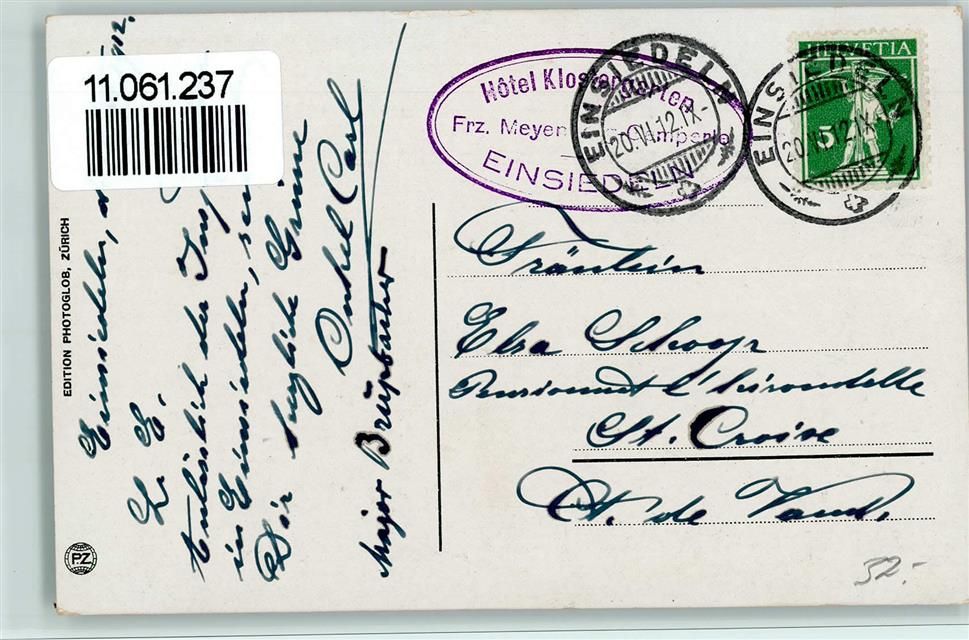 11.061.237
Hôtel Klostergarten
Frz. Meyer
EINSIEDELN
EINSIEDELN
20.VI.12.IX-
HELVETIA
5
EINSIEDELN
20.VI.12.IX-
Fräulein
Elsa Schoop
Pensionnat l'hirondelle
St. Croixe
Ct. de Vaud.
Einsiedeln,
L. E.
Anlässlich der
in Einsiedeln,
Dir herzliche Grüsse
Onkel Carl
Major Bruppacher
EDITION PHOTOGLOB, ZÜRICH
PZ
32.-